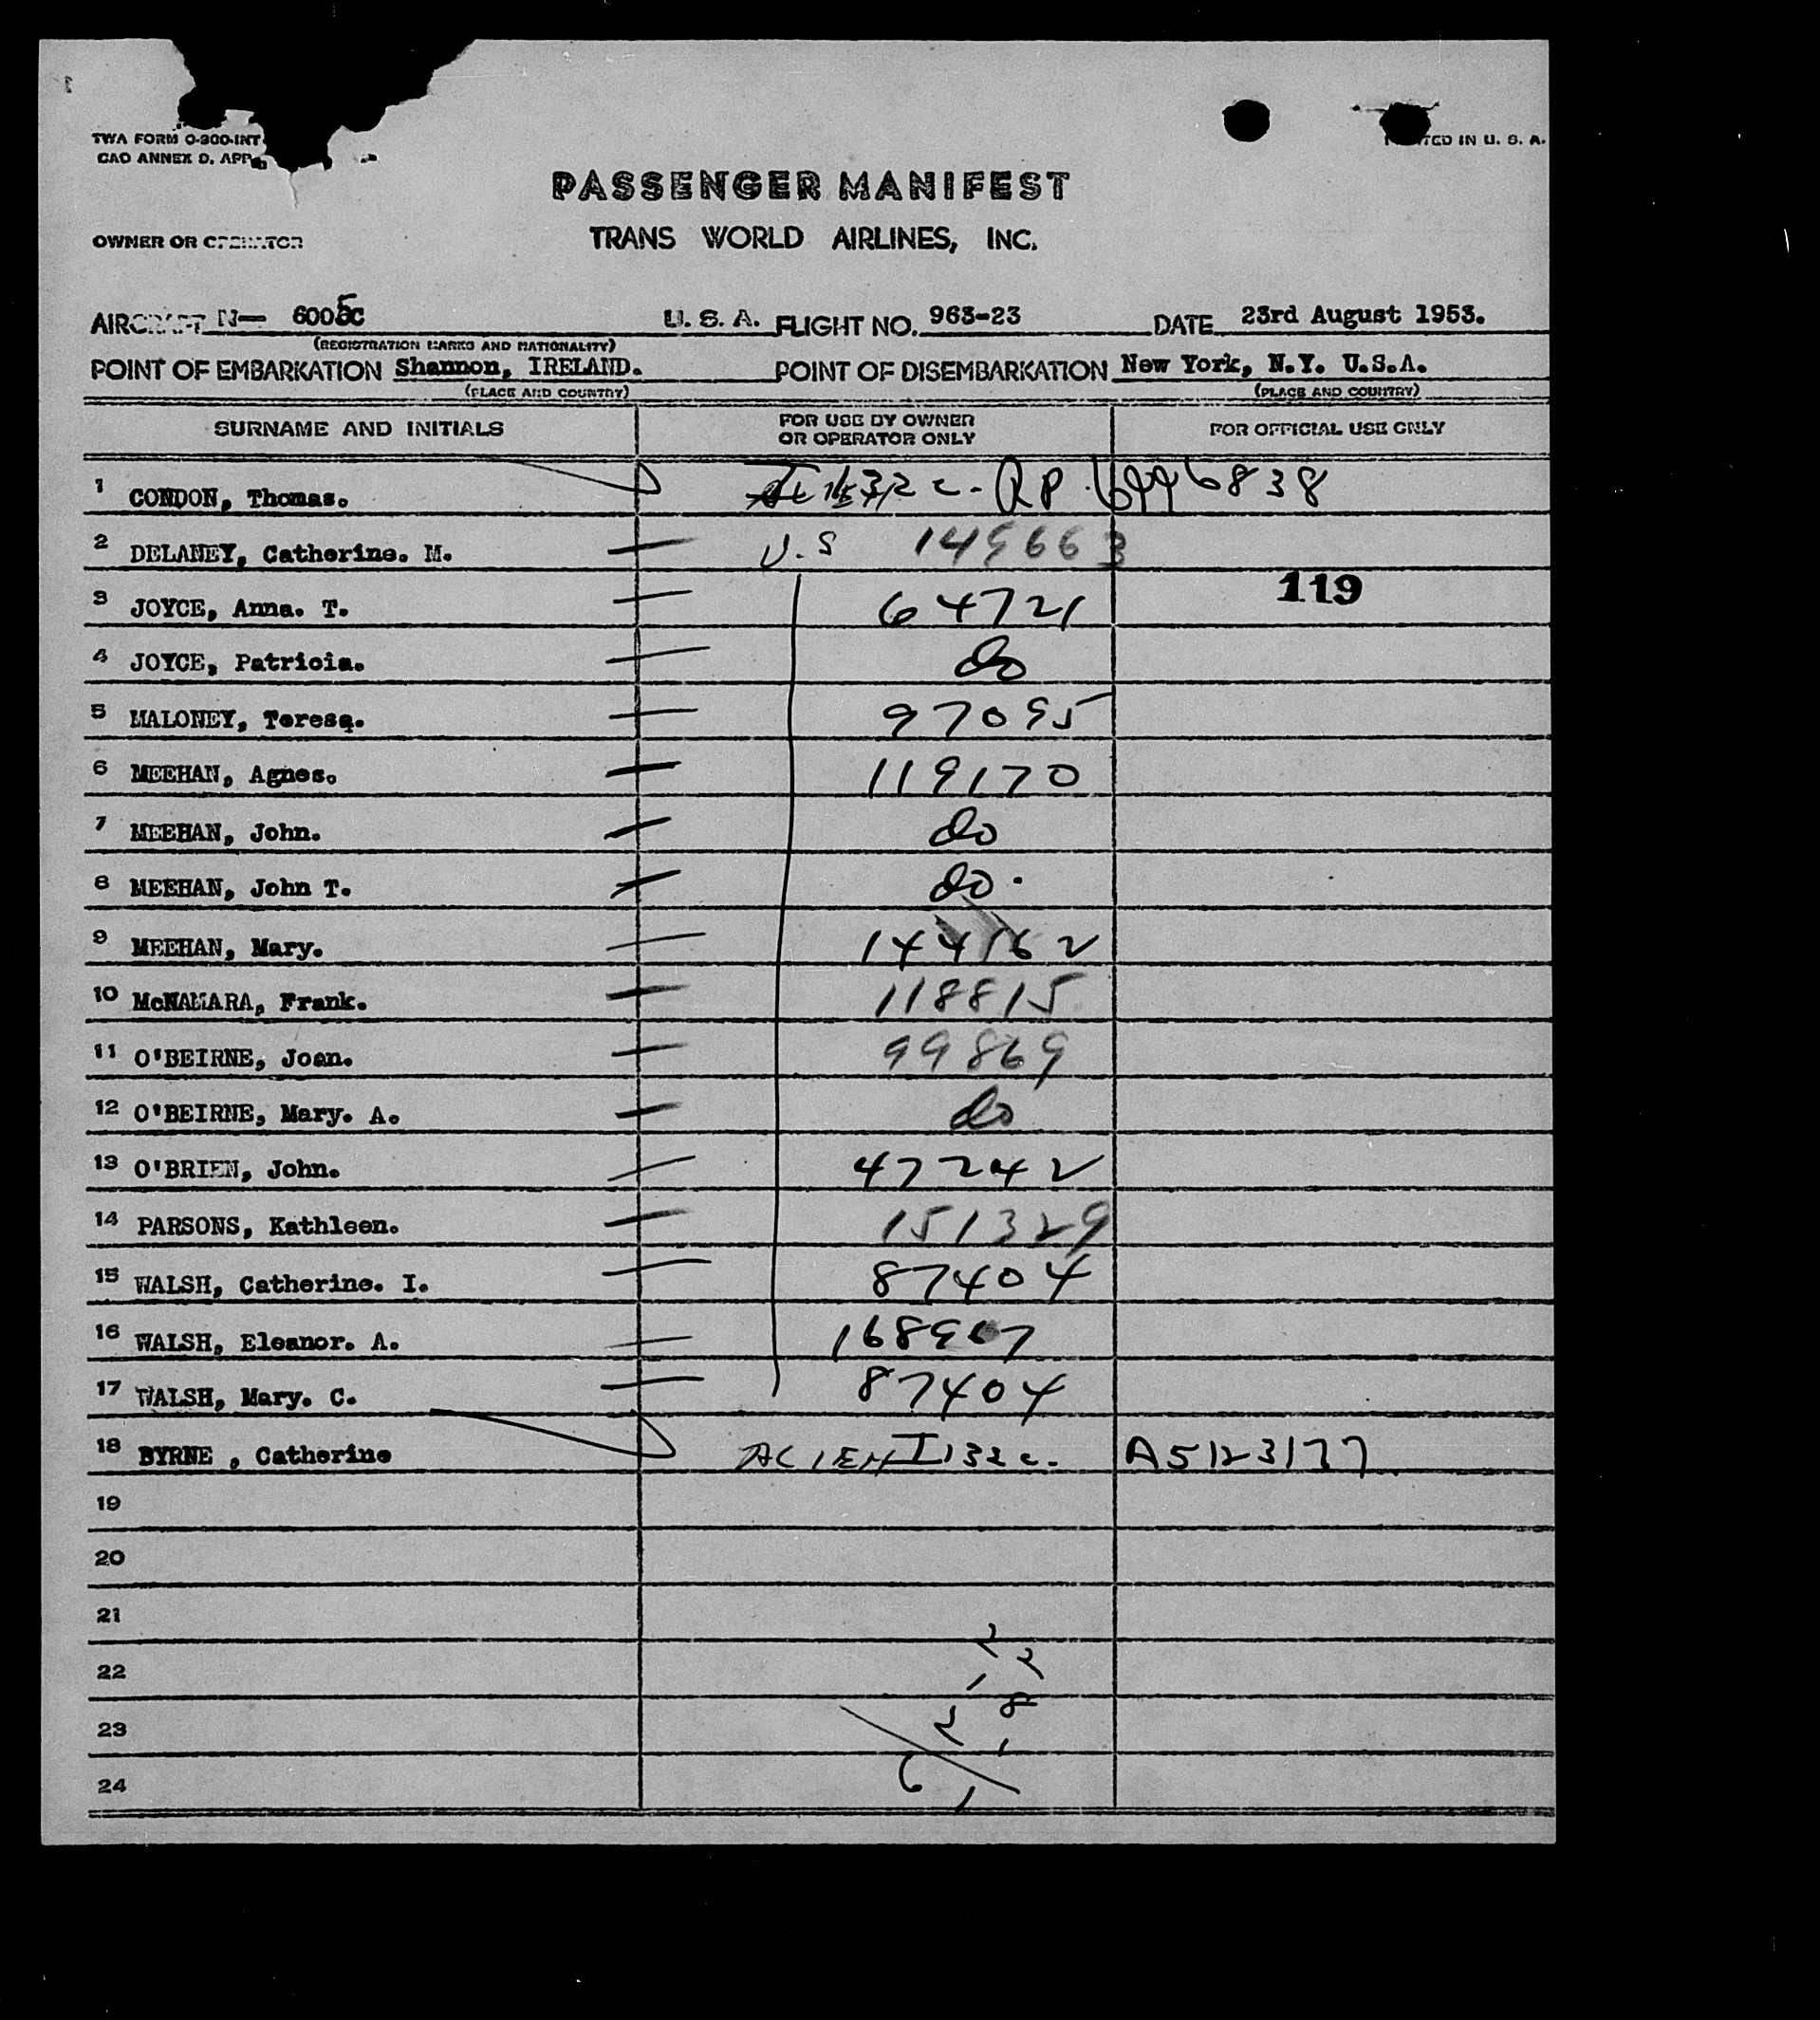 TWA FORM O-300-INT
CAO ANNEX D, APP.
TED IN U. S. A.
PASSENGER MANIFEST
OWNER OR OPERATOR TRANS WORLD AIRLINES, INC.
AIRCRAFT N— 6005C U. S. A. FLIGHT NO. 963-23 DATE 23rd August 1953.
(REGISTRATION MARKS AND NATIONALITY)
POINT OF EMBARKATION Shannon, IRELAND. POINT OF DISEMBARKATION New York, N.Y. U.S.A.
(PLACE AND COUNTRY) (PLACE AND COUNTRY)
SURNAME AND INITIALS FOR USE BY OWNER OR OPERATOR ONLY FOR OFFICIAL USE ONLY
1 CONDON, Thomas. RP. 6996838
2 DELANEY, Catherine. M. U.S 149663
119
3 JOYCE, Anna. T. 64721
4 JOYCE, Patricia. do
5 MALONEY, Teresa. 97095
6 MEEHAN, Agnes. 119170
7 MEEHAN, John. do
8 MEEHAN, John T. do.
9 MEEHAN, Mary. 144162
10 McNAMARA, Frank. 118815
11 O'BEIRNE, Joan. 99869
12 O'BEIRNE, Mary. A. do
13 O'BRIEN, John. 47242
14 PARSONS, Kathleen. 151329
15 WALSH, Catherine. I. 87404
16 WALSH, Eleanor. A. 168967
17 WALSH, Mary. C. 87404
18 BYRNE , Catherine ALIEN I132c. A5123177
19
20
21
22
23
24